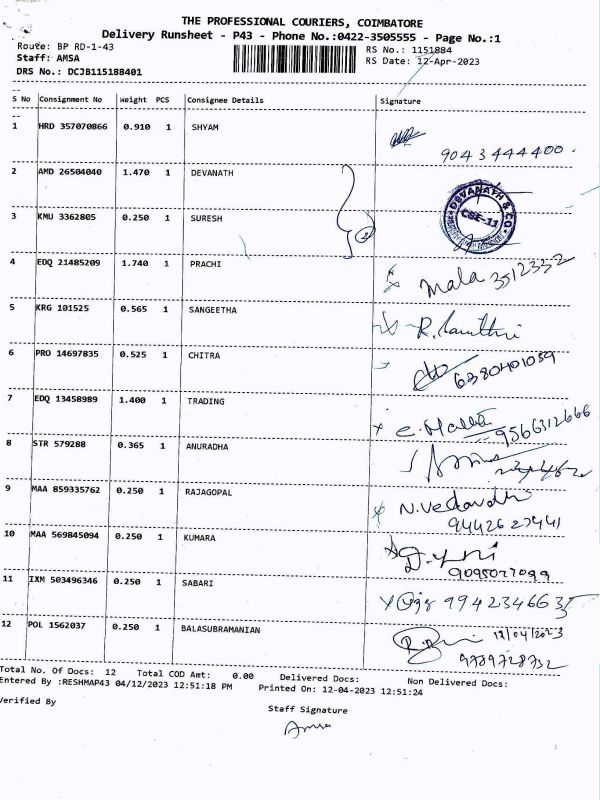 THE PROFESSIONAL COURIERS, COIMBATORE
Delivery Runsheet - P43 - Phone No.:0422-3505555 - Page No.:1
Route: BP RD-1-43 RS No.: 1151884
Staff: AMSA RS Date: 12-Apr-2023
DRS No.: DCJB115188401
S No Consignment No Weight PCS Consignee Details Signature
1 HRD 357070866 0.910 1 SHYAM
9043444400.
2 AMD 26504040 1.470 1 DEVANATH
DEVANATH & CO
CBE-11
3 KMU 3362805 0.250 1 SURESH
4 EDQ 21485209 1.740 1 PRACHI
Mala 3512332
5 KRG 101525 0.565 1 SANGEETHA
6 PRO 14697835 0.525 1 CHITRA
6380401059
7 EDQ 13458989 1.400 1 TRADING
9566312666
8 STR 579288 0.365 1 ANURADHA
9 MAA 859335762 0.250 1 RAJAGOPAL
N.Vedavathi
9442627441
10 MAA 569845094 0.250 1 KUMARA
9095077099
11 IXM 503496346 0.250 1 SABARI
9942346635
12 POL 1562037 0.250 1 BALASUBRAMANIAN
12/04/2023
9789728732
Total No. Of Docs: 12 Total COD Amt: 0.00 Delivered Docs: Non Delivered Docs:
Entered By :RESHMAP43 04/12/2023 12:51:18 PM Printed On: 12-04-2023 12:51:24
Verified By Staff Signature
Amsa